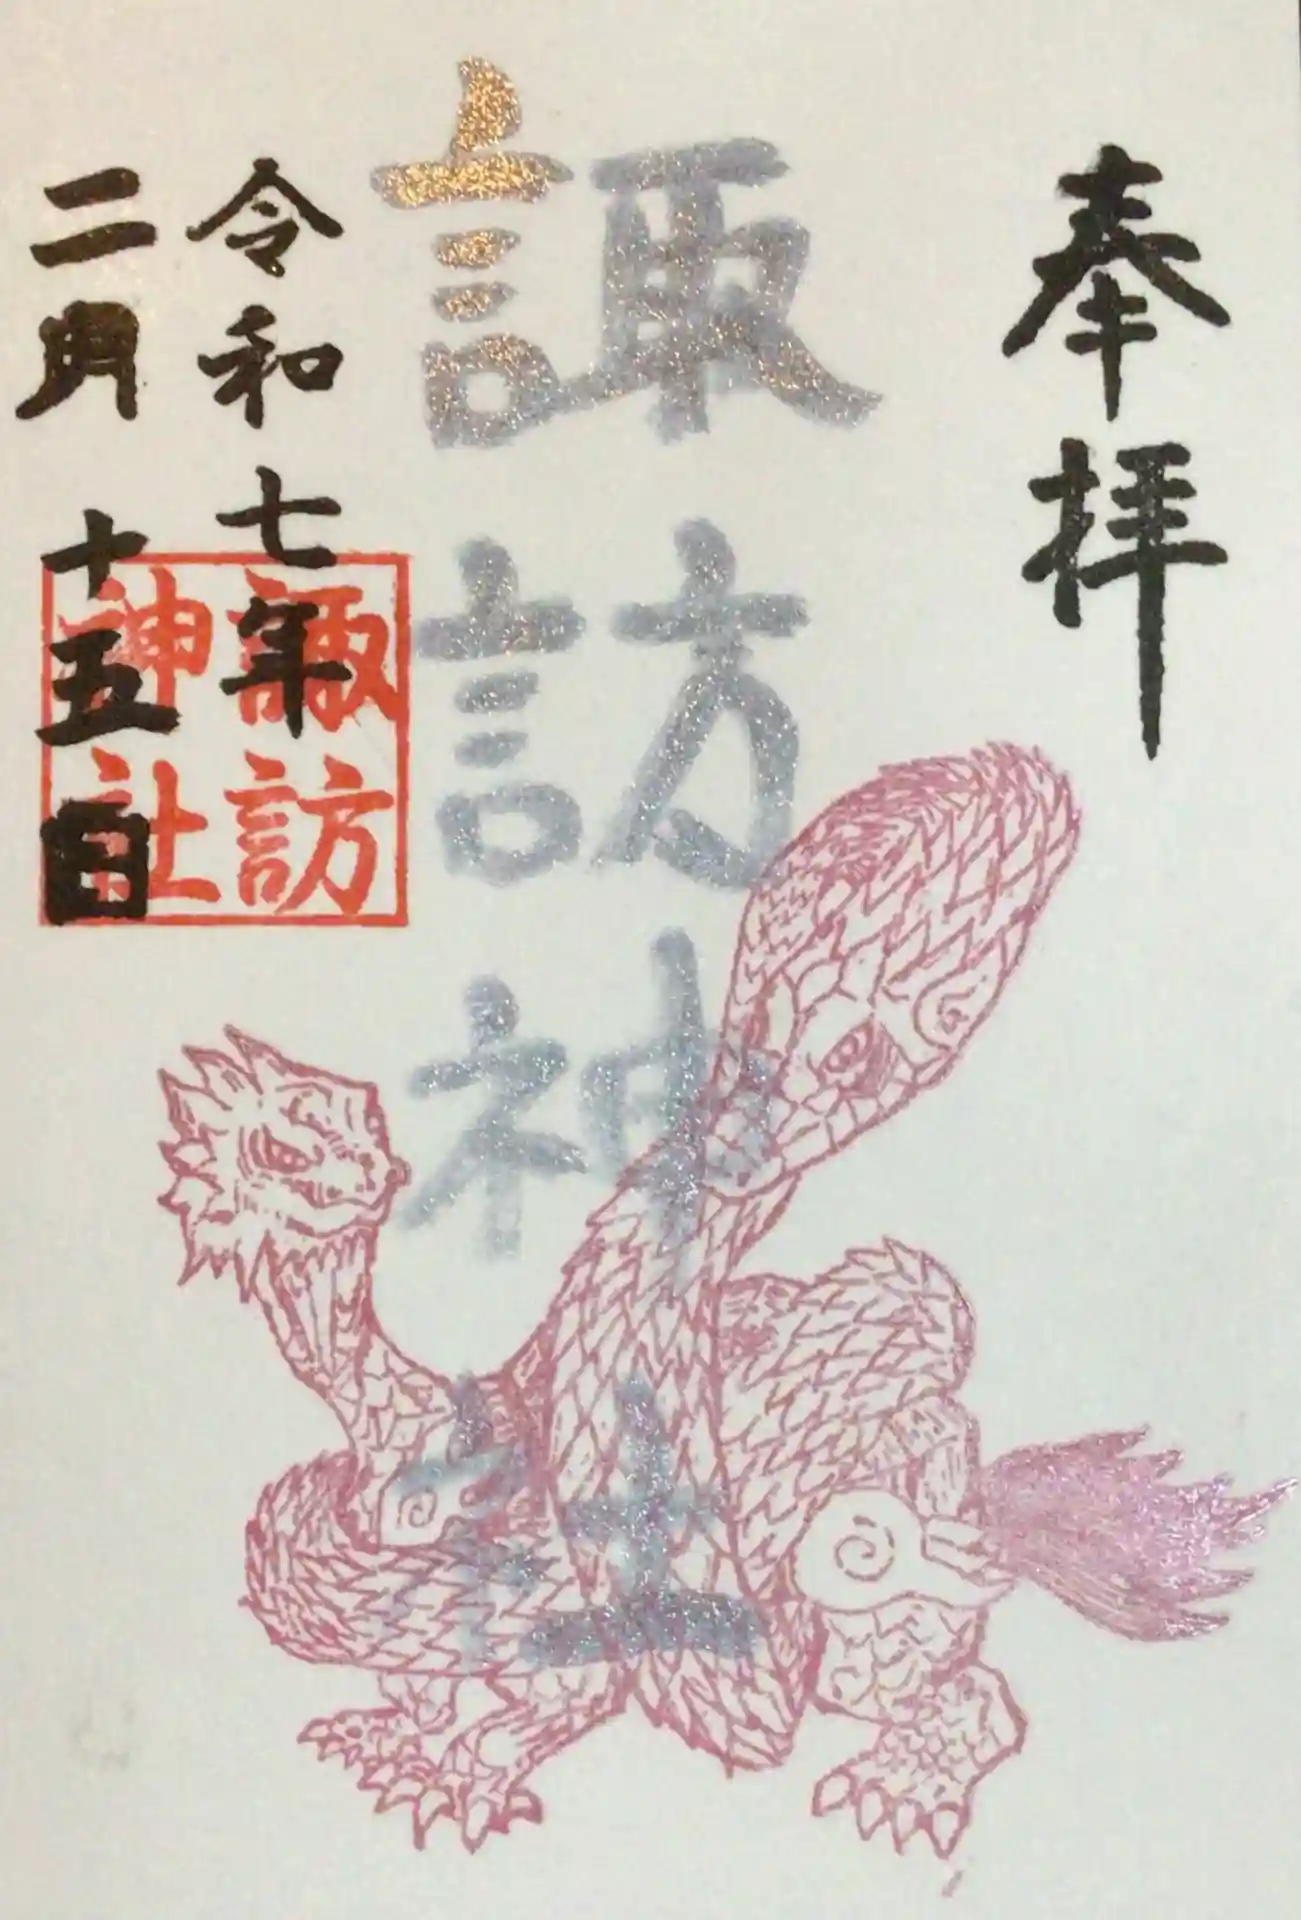 奉拝
諏訪神社
令和七年
二月十五日
諏訪
神社